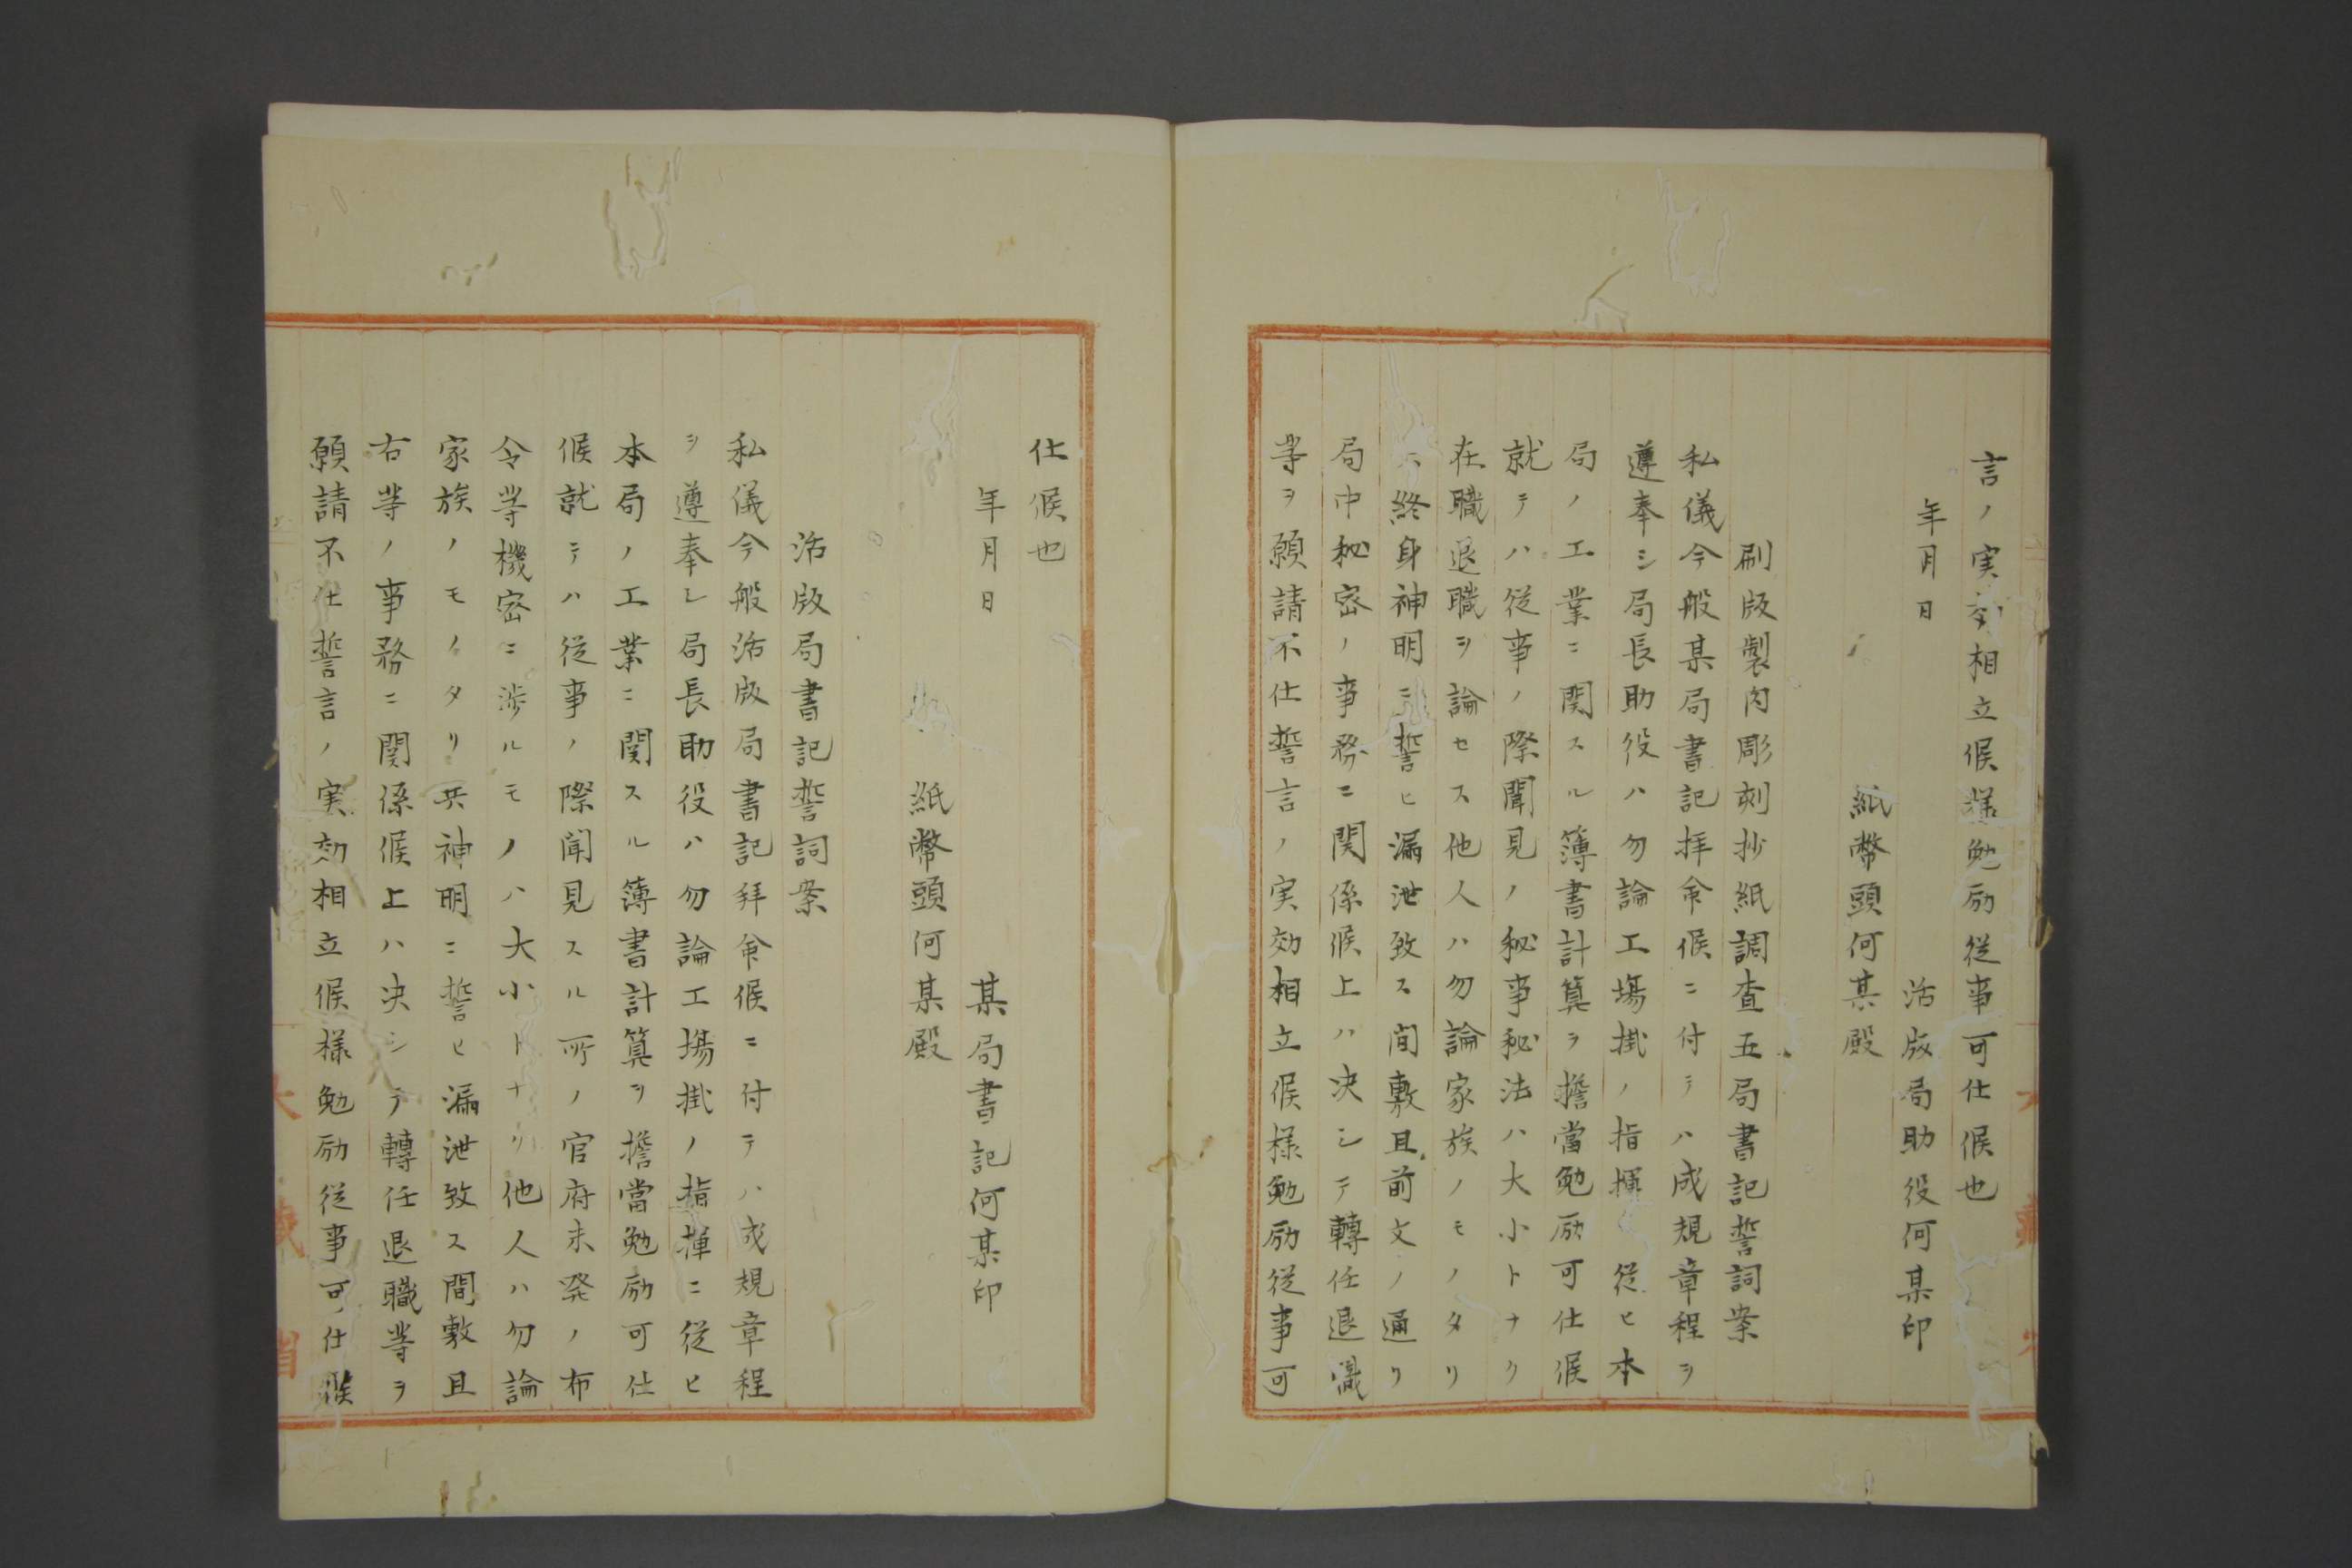 言ノ実効相立候様勉励従事可仕候也
年月日
活版局助役何某印
紙幣頭何某殿
刷版製肉彫刻抄紙調査五局書記誓詞案
私儀今般某局書記拝命候ニ付テハ成規章程ヲ
遵奉シ局長助役ハ勿論工場掛ノ指揮ニ従ヒ本
局ノ工業ニ関スル簿書計算ヲ擔當勉励可仕候
就テハ従事ノ際聞見ノ秘事秘法ハ大小トナク
在職退職ヲ論セス他人ハ勿論家族ノモノタリ
終身神明ニ誓ヒ漏泄致ス間敷且前文ノ通リ
局中秘密ノ事務ニ関係候上ハ决シテ轉任退職
等ヲ願請不仕誓言ノ実効相立候様勉励従事可
仕候也
年月日
某局書記何某印
紙幣頭何某殿
活版局書記誓詞案
私儀今般活版局書記拝命候ニ付テハ成規章程
ヲ遵奉シ局長助役ハ勿論工場掛ノ指揮ニ従ヒ
本局ノ工業ニ関スル簿書計算ヲ擔當勉励可仕
候就テハ従事ノ際聞見スル所ノ官府未発ノ布
令等機密ニ渉ルモノハ大小トナク他人ハ勿論
家族ノモノタリ共神明ニ誓ヒ漏泄致ス間敷且
右等ノ事務ニ関係候上ハ决シテ轉任退職等ヲ
願請不仕誓言ノ実効相立候様勉励従事可仕候
大蔵省